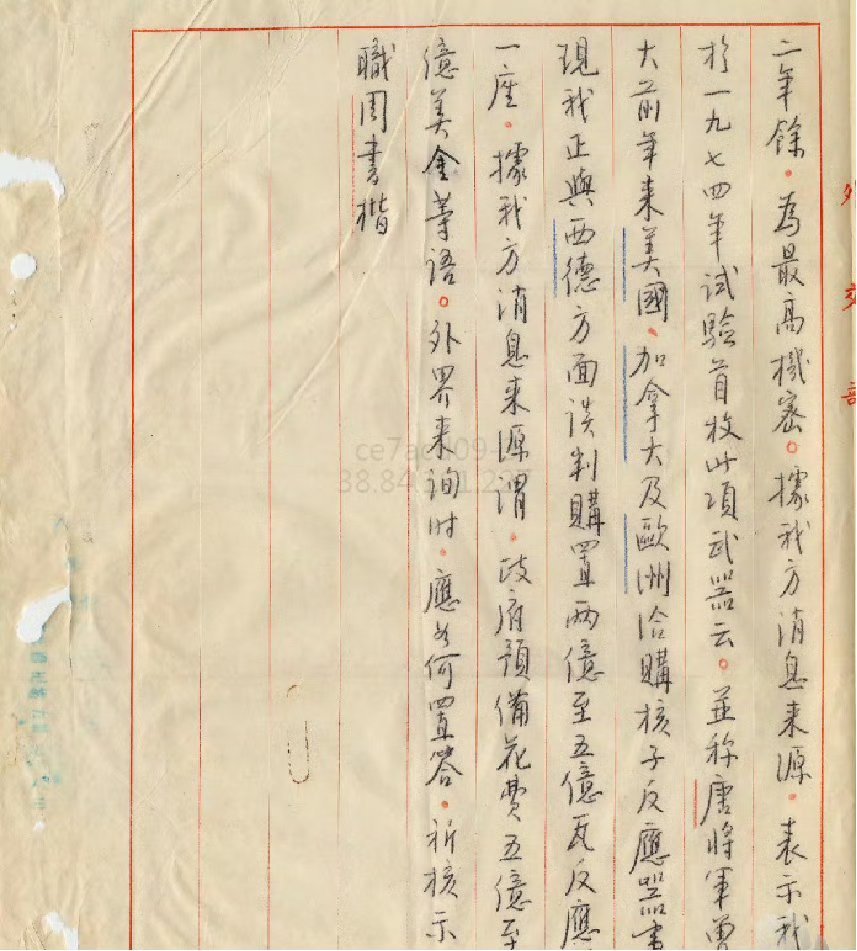 二年餘。為最高機密。據我方消息來源。表示我
於一九七四年試驗首枚此項武器云。並称唐將軍曾
大前年来美國、加拿大及歐洲洽購核子反應器
現我正與西德方面談判購置兩億至五億瓦反應
一座。據我方消息来源謂。政府預備花費五億至
億美金等語。外界来詢時。應如何置答。祈核示
職周書楷
外交部